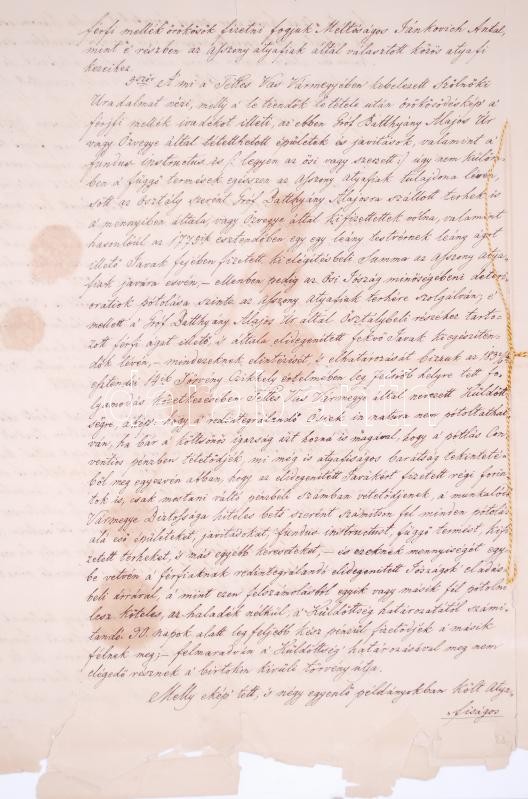 férfi mellék örökösök fizetni fogjuk Méltóságos Jánkovich Antal,
mint e részben az asszony atyafiak által választott közös atyafi
kezeihez.
A mi a Tettes Vas Vármegyében kebelezett Szőlnöki
Uradalmat nézi, melly a le teendők le tétele után örökösödéskép a
férjfi mellék ivadékot illeti, az ebben Gróf Batthyány Alajos Úr
vagy Özvegye által tetetthetett épületek és javítások, valamint a
fundus instructus is /: legyen az ősi vagy szerzett :/ úgy nem külöm-
ben a függő termések egészen az asszony atyafiak tulajdona lévén,
sőtt az osztály szerént Gróf Batthyány Alajosra szállott terhek is
a mennyiben általa, vagy Özvegye által kifizettettek volna, valamint
hasonlóul az 1779ik esztendőben egy egy leány testvérnek leány ágot
illető Javak fejében fizetett kielégítésbeli Summa az asszony atya-
fiak javára esvén, – ellenben pedig az Ősi Jószág minőségebeni deteri-
oratiók pótolása szinte az asszony atyafiak terhére szolgálván; e'
mellett a Gróf Batthyány Alajos Úr által Osztálybeli részéhez tarto-
zott férfi ágot illető, is általa elidegenített fekvő Javak kiegészíten-
dők lévén, – mindezeknek elintézését is elhatározását bízzuk az
14ik Törvény Czikkely értelmében leg felsőbb helyre tett fo-
lyamodás következésében Tettes Vas Vármegye által nevezett Küldött-
ségre, hogy a redintegrálandó Ősiek in natura nem pótoltathat-
ván, ha bár a költsönös igazság ezt hozná is magával, hogy a pótlás Con-
ventiós pénzben tétetődjék, mi még is atyafiságos barátság tekinteté-
ből meg egyezvén abban, hogy az elidegenített Javakért fizetett régi forin-
tok is, csak mostani váltó pénzbeli számban vétetődjenek, a munkálódó
Vármegye Biztossága hiteles bets szerént számítson fel minden pótolás
alá eső épületeket, javításokat, fundus instructust, függő termést, kifi-
zetett terheket, is más egyébb kereseteket, – és ezeknek mennyiségét egy-
be vetvén a férfiaknak redintegrálandó elidegenített Jószágok eladás-
beli árrával, a mint ezen felszámolásból egyik vagy másik fél pótolni
lesz köteles, az haladék nélkül, a Küldöttség határozatától számí-
tandó 90. napok alatt leg feljebb kész pénzül fizetődjék a másik
félnek meg; – felmaradván a Küldöttség határozásával meg nem
elégedő résznek a birtokon kívüli törvény útja.
Melly ekép tett, is négy egyenlő példányokban költ Atya-
fiságos